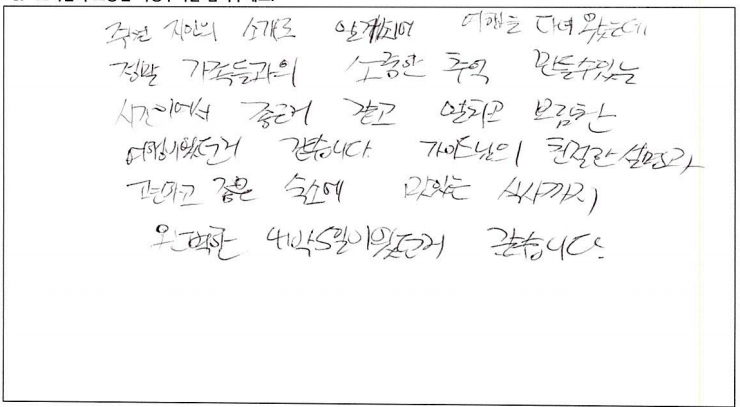 주변 지인의 소개로 알게되어 여행을 다녀왔는데
정말 가족들과의 소중한 추억 만들수있는
시간이어서 좋은거 같고 알차고 보람찬
여행이였던거 같습니다. 가이드님의 친절한 설명과
고 숙소에 맛있는 식사까지
완벽한 4박5일이였던거 같습니다.